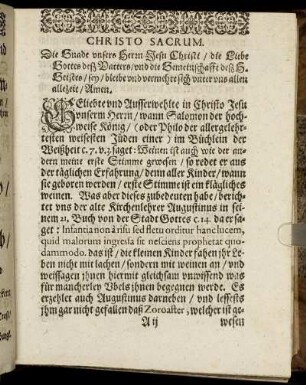 CHRISTO SACRUM.
Die Gnade unsers Herrn Jesu Christi / die Liebe
Gottes deß Vatters / und die Gemeinschafft deß H.
Geistes / sey / bleibe und vermehre sich unter uns allen
allezeit / Amen.
GEliebte und Ausserwehlte in Christo Jesu
unserm Herrn / wann Salomon der hoch-
weise König / (oder Philo der allergelehr-
testen weisesten Jüden einer) im Büchlein der
Weißheit c. 7. v. 3 saget: Weinen ist auch wie der an-
dern meine erste Stimme gewesen / so redet er aus
der täglichen Erfahrung / denn aller Kinder / wann
sie geboren werden / erste Stimme ist ein klägliches
weinen. Was aber dieses zubedeuten habe / berich-
tet uns der alte Kirchenlehrer Augustinus in sei-
nem 21. Buch von der Stadt Gottes c. 14. da er sa-
get: Infantia non à risu sed fletu orditur hanc lucem,
quid malorum ingressa sit nesciens prophetat quo-
dammodo. das ist / die kleinen Kinder fahen ihr Le-
ben nicht mit lachen / sondern mit weinen an / und
weissagen ihnen hiermit gleichsam unwissend was
für mancherley Ubels ihnen begegnen werde. Es
erzehlet auch Augustinus darneben / und lessests
ihm gar nicht gefallen daß Zoroaster, welcher ist ge-
A ij
wesen